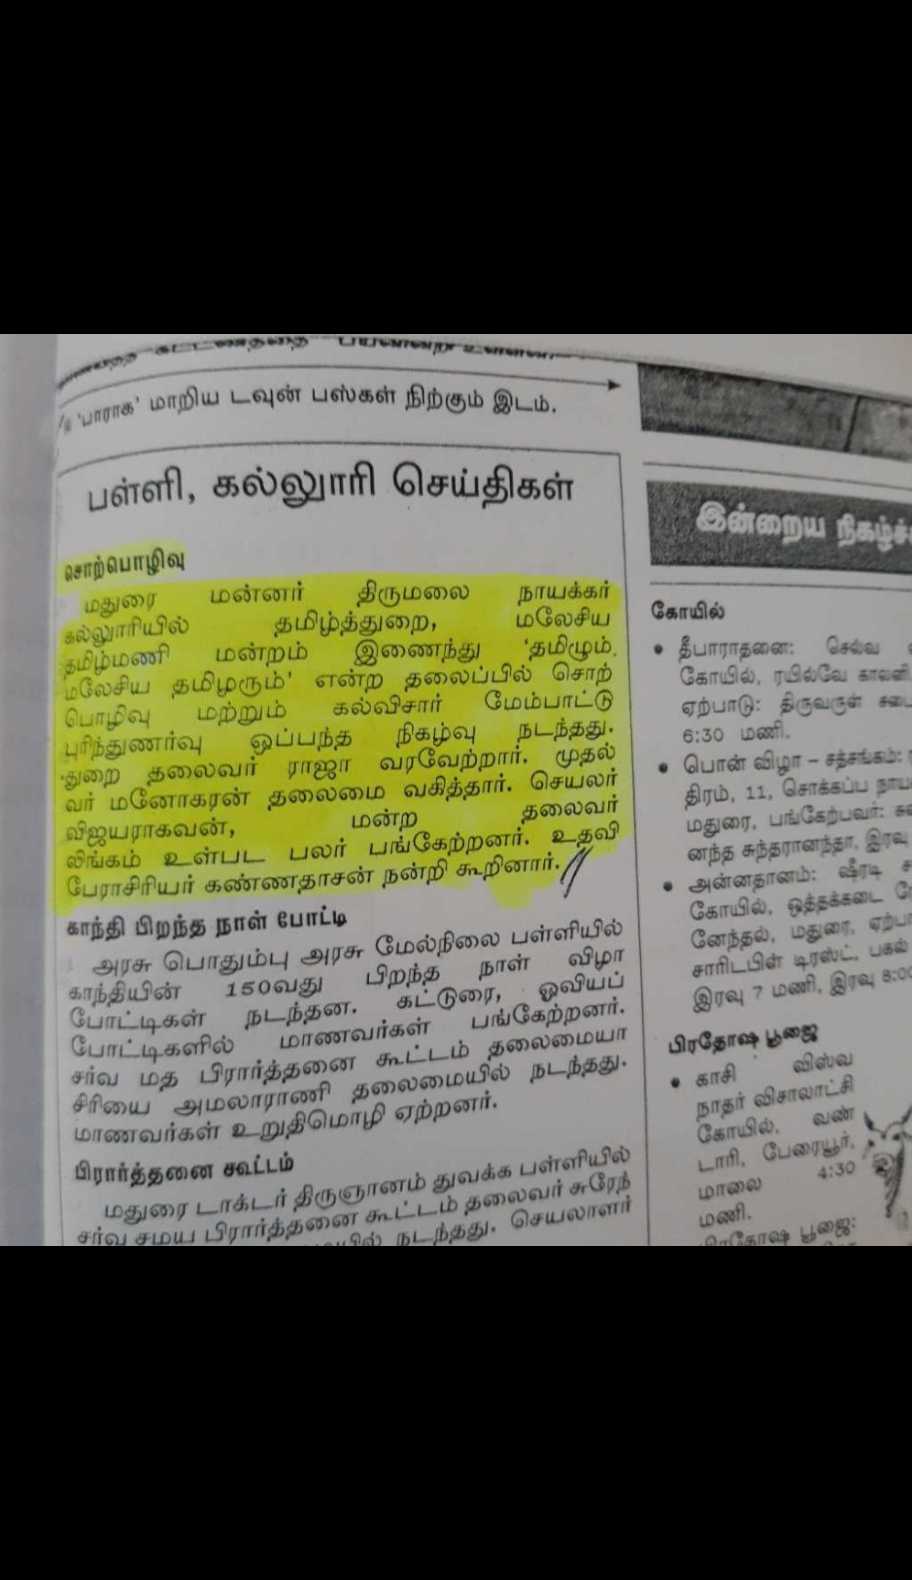 'பாராக' மாறிய டவுன் பஸ்கள் நிற்கும் இடம்.
பள்ளி, கல்லூரி செய்திகள்
சொற்பொழிவு
மதுரை மன்னர் திருமலை நாயக்கர்
கல்லூரியில் தமிழ்த்துறை, மலேசிய
தமிழ்மணி மன்றம் இணைந்து 'தமிழும்
மலேசிய தமிழரும்' என்ற தலைப்பில் சொற்
பொழிவு மற்றும் கல்விசார் மேம்பாட்டு
புரிந்துணர்வு ஒப்பந்த நிகழ்வு நடந்தது.
துறை தலைவர் ராஜா வரவேற்றார். முதல்
வர் மனோகரன் தலைமை வகித்தார். செயலர்
விஜயராகவன், மன்ற தலைவர்
லிங்கம் உள்பட பலர் பங்கேற்றனர். உதவி
பேராசிரியர் கண்ணதாசன் நன்றி கூறினார்.
காந்தி பிறந்த நாள் போட்டி
அரசு பொதும்பு அரசு மேல்நிலை பள்ளியில்
காந்தியின் 150வது பிறந்த நாள் விழா
போட்டிகள் நடந்தன. கட்டுரை, ஓவியப்
போட்டிகளில் மாணவர்கள் பங்கேற்றனர்.
சர்வ மத பிரார்த்தனை கூட்டம் தலைமையா
சிரியை அமலாராணி தலைமையில் நடந்தது.
மாணவர்கள் உறுதிமொழி ஏற்றனர்.
பிரார்த்தனை கூட்டம்
மதுரை டாக்டர் திருஞானம் துவக்க பள்ளியில்
சர்வ சமய பிரார்த்தனை கூட்டம் தலைவர் சுரேந்
நடந்தது. செயலாளர்
இன்றைய
கோயில்
• தீபாராதனை: செல்வ
கோயில், ரயில்வே காலனி,
ஏற்பாடு: திருவருள்
6:30 மணி.
• பொன் விழா – சத்சங்கம்:
திரம், 11, சொக்கப்ப
மதுரை, பங்கேற்பவர்:
னந்த சுந்தரானந்தா, இரவு
• அன்னதானம்: ஷீரடி
கோயில், ஒத்தக்கடை
னேந்தல், மதுரை,
சாரிடபிள் டிரஸ்ட், பகல்
இரவு 7 மணி, இரவு
பிரதோஷ பூஜை
• காசி விஸ்வ
நாதர் விசாலாட்சி
கோயில், வண்
டாரி, பேரையூர்,
மாலை 4:30
மணி.
பூஜை: